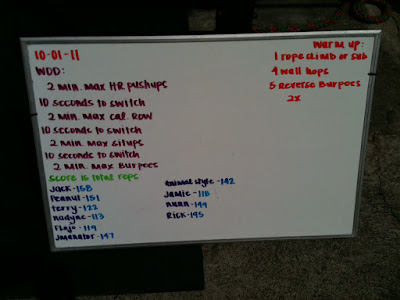 10-01-11
WOD:
2 min. max HR pushups
10 seconds to switch
2 min. max cal. Row
10 seconds to switch
2 min. max situps
10 seconds to switch
2 min. max Burpees
Score is total reps
Jack-158
Peanut-151
terry-122
nadyne-113
Flojo-119
Jmanator-147
animal style-142
Jamie-118
nunn-149
Rick-195
Warm up:
1 rope climb or sub
4 wall hops
5 Reverse Burpees
2x